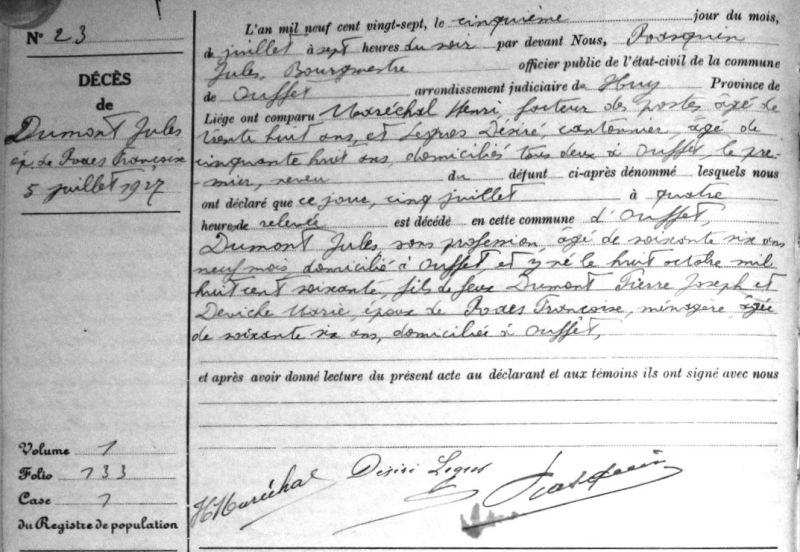 Nº 23
DÉCÈS
de
Dumont Jules
ép. de Rodes Françoise
5 juillet 1927
Volume 1
Folio 133
Case 1
du Registre de population
L'an mil neuf cent vingt-sept, le cinquième jour du mois,
de juillet à sept heures du soir par devant Nous, Pasquin
Jules, Bourgmestre officier public de l'état-civil de la commune
de Ouffet arrondissement judiciaire de Huy Province de
Liége ont comparu Maréchal Henri, facteur des postes âgé de
trente huit ans, et Legros Désiré, cantonnier, âgé de
cinquante huit ans, domiciliés tous deux à Ouffet le pre-
-mier, neveu du défunt ci-après dénommé lesquels nous
ont déclaré que ce jour, cinq juillet à quatre
heures de relevée est décédé en cette commune d'Ouffet,
Dumont Jules, sans profession, âgé de soixante six ans
neuf mois, domicilié à Ouffet, et y né le huit octobre mil
huit cent soixante, fils de feux Dumont Pierre Joseph et
Deviche Marie, époux de Rodes Françoise, ménagère âgée
de soixante six ans, domiciliée à Ouffet,
et après avoir donné lecture du présent acte au déclarant et aux témoins ils ont signé avec nous
H Maréchal Désiré Legros Pasquin